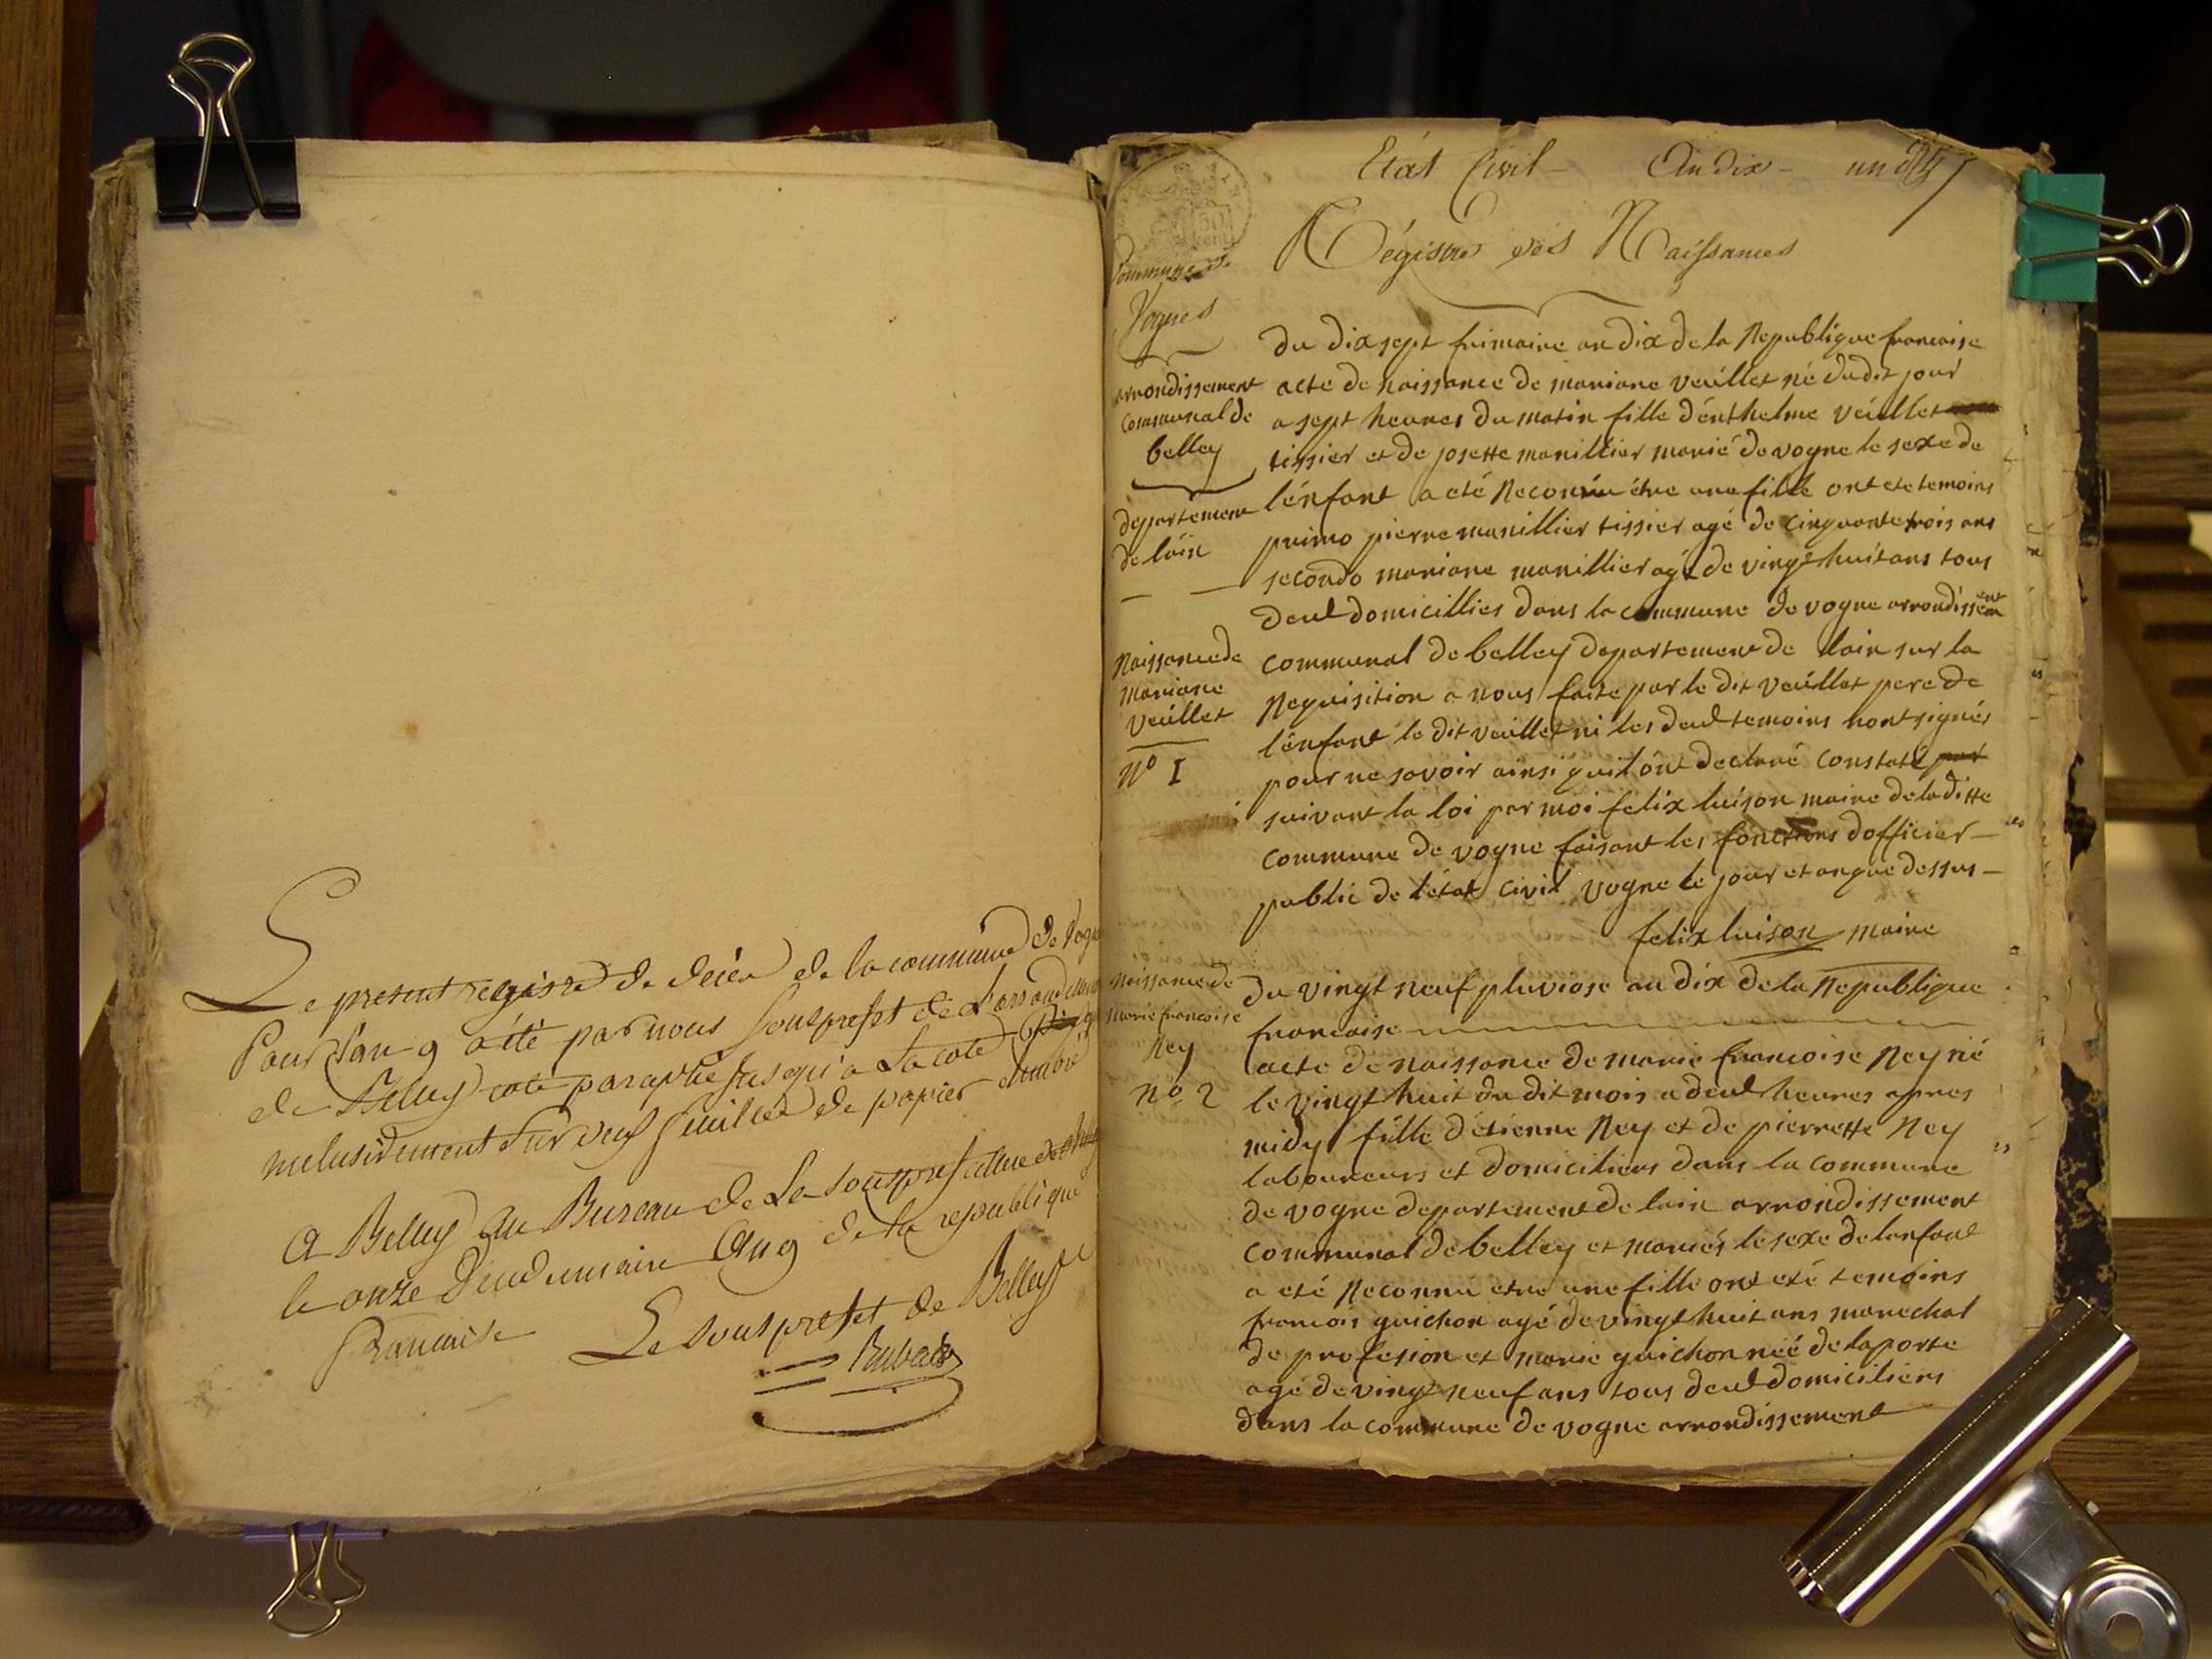 Le present registre de décès de la commune de Vogn
Pour l'an 9 a été par nous souspréfet de L'arrondiment
de Belley coté paraphé jusqu'a La cote
inclusivement sur neuf feuilles de papier
a Belley au Bureau de La souspréfecture
le onze vendemiaire an 9 de la republique
francaise Le souspréfet de Belley
Rubat
Etat Civil - An dix - un
Régistre des Naissances
Commune de
Vognes
arrondissement
communal de
belley
departement
de lain
du dix sept frimaire an dix de la Republique francaise
acte de naissance de mariane veúillet né dudit jour
a sept heures du matin fille dénthelme véuillet
tissier et de josette manillier marié de vogne le sexe de
lénfant a eté Reconnu étre une fille ont ete temoins
primo pierre manillier tissier agé de cinquante trois ans
secondo mariane manillier agé de vingt huit ans tous
deul domicilliés dans la commune de vogne arrondissement
communal de belley departement de lain sur la
Requisition a nous faite par le dit veuillet pere de
lénfant le dit veuillet ni les deul temoins nont signés
pour ne savoir ainsi quil ont declaré constaté par
suivant la loi par moi felix luison maire de la ditte
commune de vogne faisant les fonctions dofficier -
public de létat civil vogne le jour et an que dessus -
felix luison maire
Naissance de
mariane
veúillet
No I
Naissance de
marie francoise
Rey
no 2
du vingt neuf pluviose an dix de la Republique
francaise
acte de naissance de marie francoise Rey né
le vingt huit du dit mois a deul heures apres
midy fille détienne Rey et de pierrette Rey
laboureurs et domiciliers dans la commune
de vogne departement de lain arrondissement
communal de belley et mariés le sexe de lenfant
a eté Reconnu etre une fille ont eté temoins
francois guichon agé de vingt huit ans marechal
de profesion et marie guichon neé delaporte
agé de vingt neuf ans tous deul domiciliers
dans la commune de vogne arrondissement